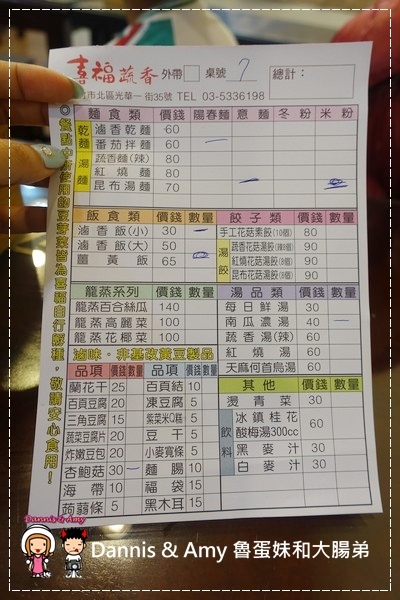 喜福蔬香 外帶 桌號 7 總計：
市北區光華一街35號 TEL 03-5336198
麵食類 價錢 陽春麵 意麵 冬粉 米粉
乾麵 滷香乾麵 60
番茄拌麵 60
湯麵 蔬香麵(辣) 80
紅燒麵 80
昆布湯麵 70
飯食類 價錢 數量
滷香飯(小) 30
滷香飯(大) 50
薑黃飯 65
餃子類 價錢 數量
手工花菇素餃(10個) 80
湯餃 蔬香花菇湯餃(辣8個) 90
紅燒花菇湯餃(8個) 90
昆布花菇湯餃(8個) 90
龍蒸系列 價錢 數量
龍蒸百合絲瓜 140
龍蒸高麗菜 100
龍蒸花椰菜 100
湯品類 價錢 數量
每日鮮湯 30
南瓜濃湯 40
蔬香湯(辣) 60
紅燒湯 60
天麻何首烏湯 60
滷味．非基改黃豆製品
品項 價錢 數量 品項 價錢 數量
蘭花干 25 百頁結 10
百頁豆腐 20 凍豆腐 5
三角豆腐 15 紫菜米Q糕 5
蔬菜豆腐片 20 豆干 5
炸嫩豆包 20 小麥寬條 5
杏鮑菇 30 麵腸 10
海帶 10 福袋 15
蒟蒻條 5 黑木耳 15
其他 價錢 數量
燙青菜 30
飲料 冰鎮桂花酸梅湯300cc 60
黑麥汁 30
白麥汁 30
自行孵種，敬請安心食用！
Dannis & Amy
Dannis & Amy 魯蛋妹和大腸弟